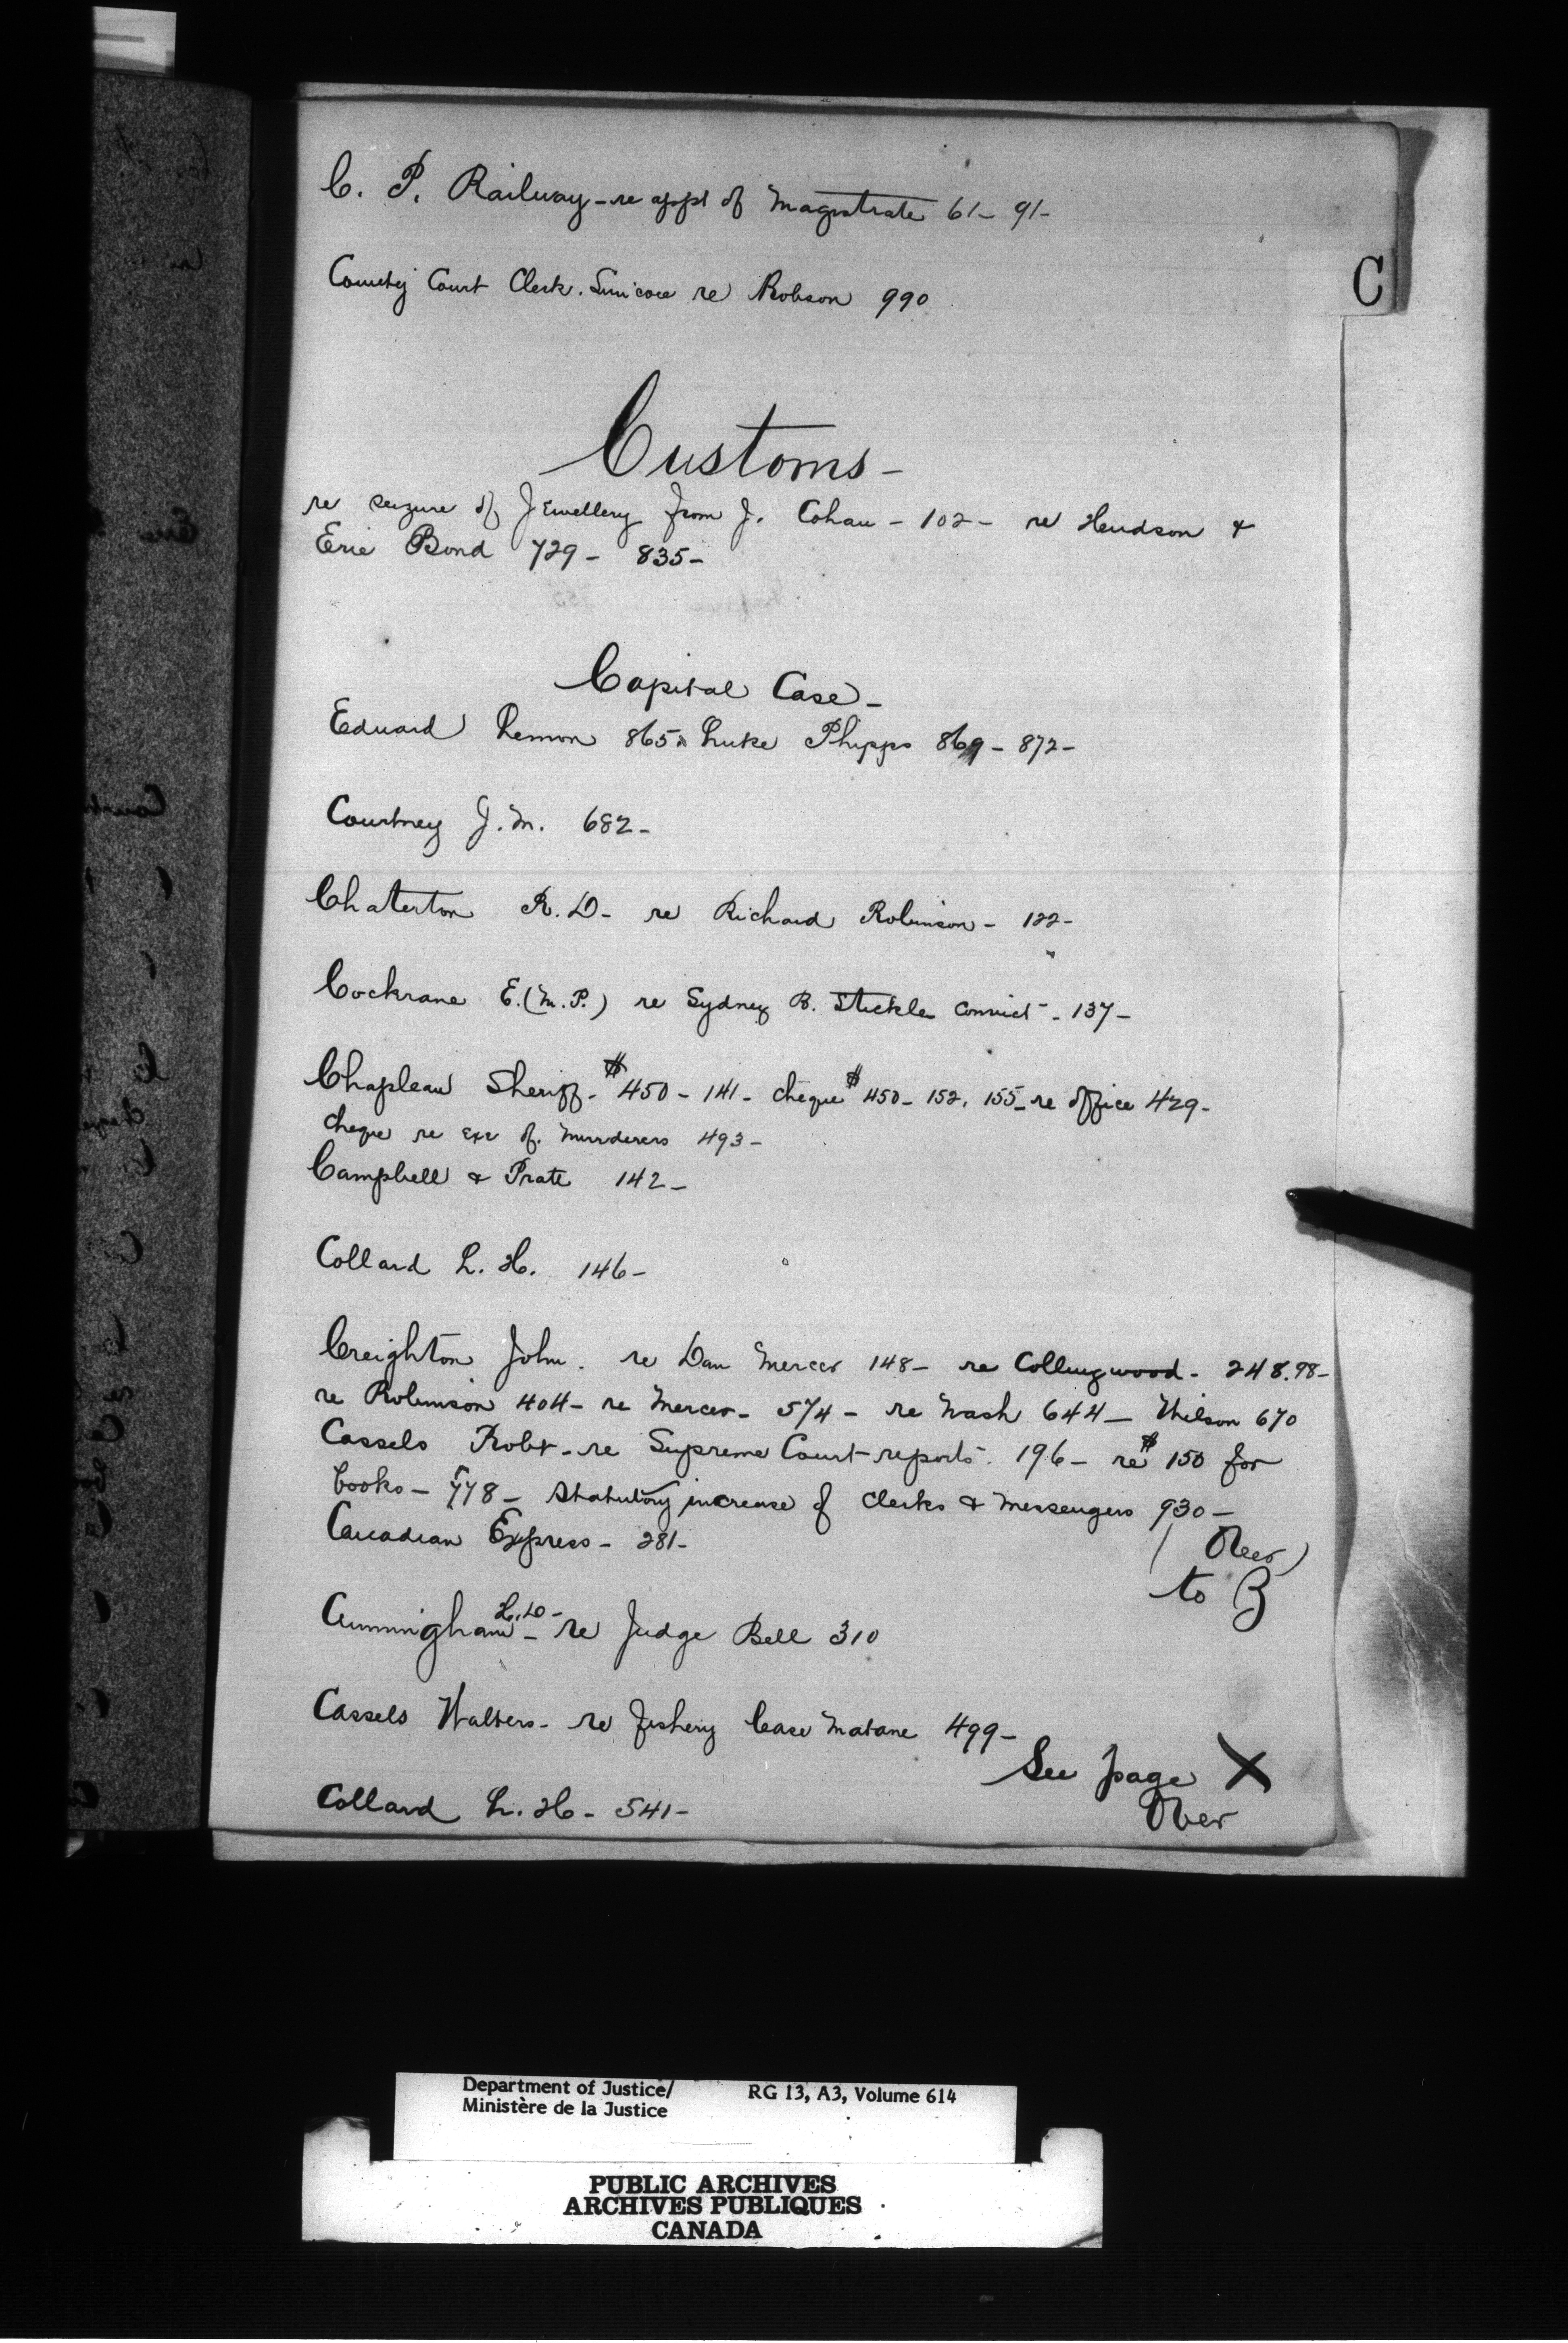 C. P. Railway - re appt of Magistrate 61 - 91 -
County Court Clerk. Simcoe re Robson 990
C
Customs -
re seizure of Jewellery from J. Cohau - 102 - re Hendson &
Erie Bond 729 - 835 -
Capital Case -
Edward Lemon 865 Luke Phipps 869 - 872 -
Courtney J. M. 682 -
Chaterton R. D - re Richard Robinson - 122 -
Cockrane E. (M. P.) re Sydney B. Stickle Convict - 137 -
Chapleau Sheriff - $450 - 141 - cheque $450 - 152, 155 - re office 429 -
cheque re exe of murderers 493 -
Campbell & Prate 142 -
Collard L. H. 146 -
Creighton John. re Dan Mercer 148 - re Collingwood - 248.98 -
re Robinson 404 - re Mercer - 574 - re Nash 644 - Wilson 670
Cassels Robt - re Supreme Court reports. 196 - re $150 for
books - 778 - Statutory increase of Clerks & Messengers 930 -
Canadian Express - 281 -
(Over)
to B
Cunningham H. D - re Judge Bell 310
Cassels Walters - re fishery Case Matane 499 -
See page X
Over
Collard L. H - 541 -
Department of Justice/ RG 13, A3, Volume 614
Ministère de la Justice
PUBLIC ARCHIVES
ARCHIVES PUBLIQUES
CANADA